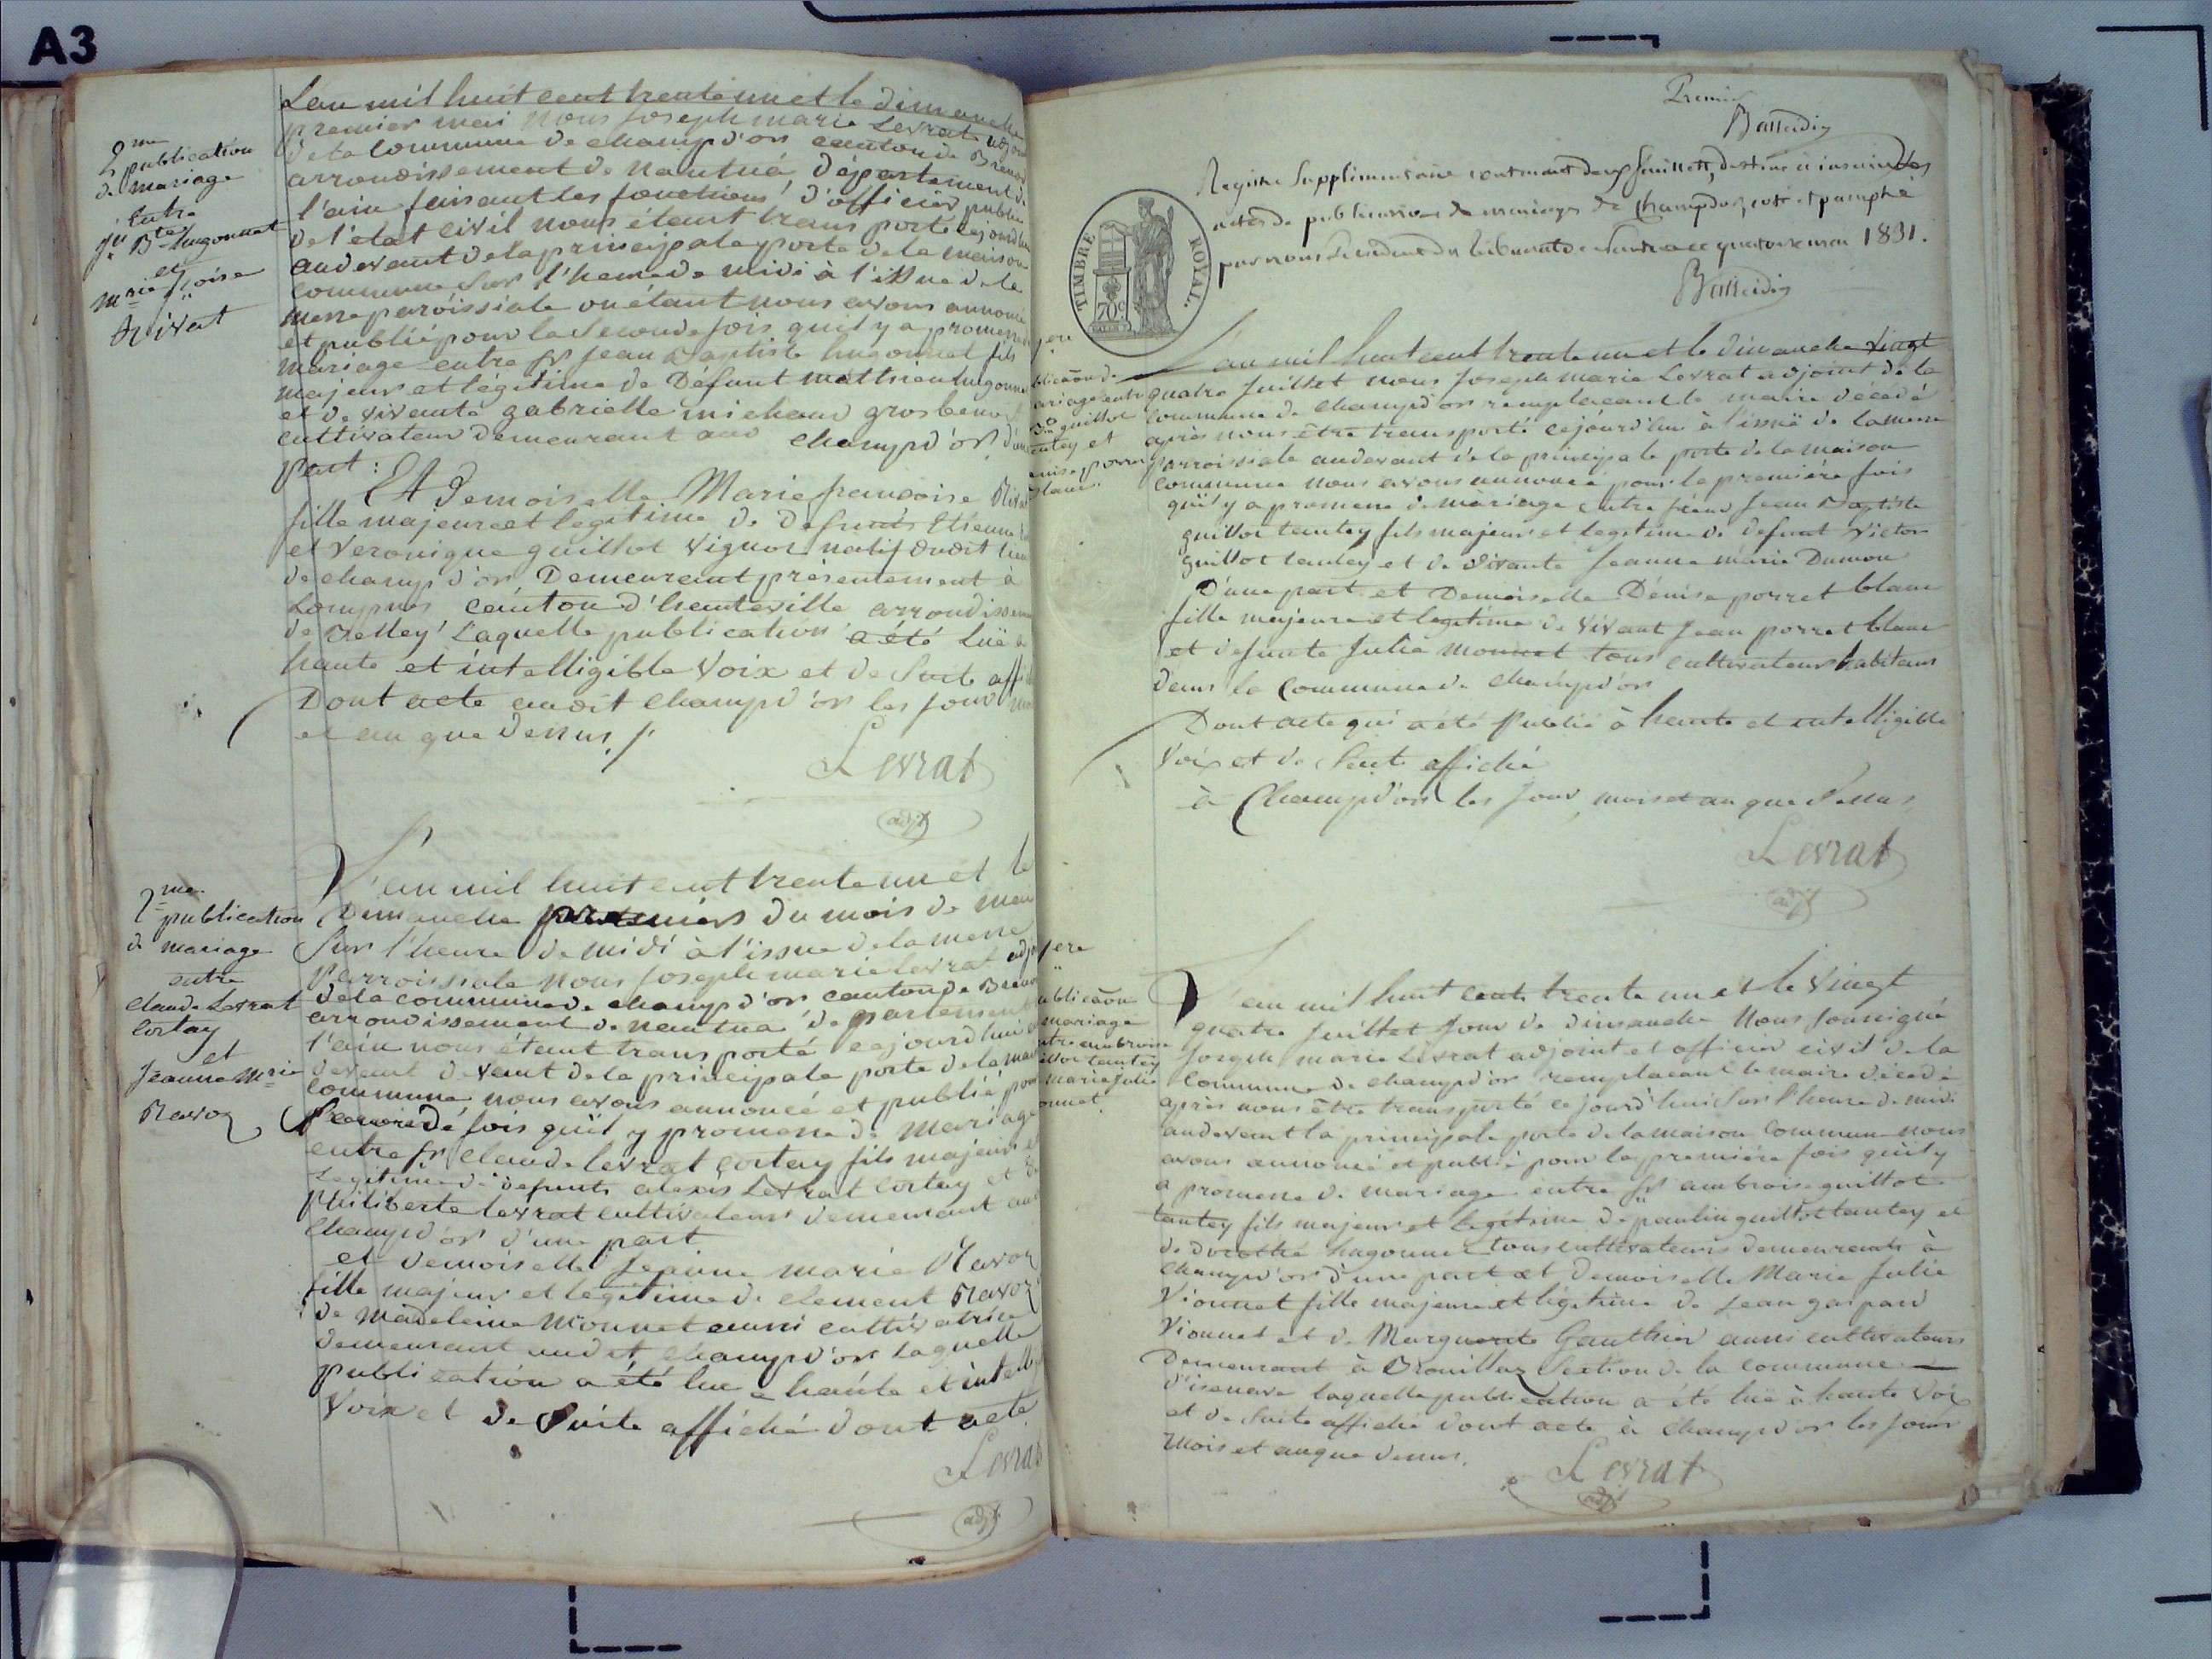 A3
2me
publication
de mariage
entre
jn Bte hugonnet
et
mrie fçoise
Rivat
L'an mil huit cent trente un et le dimanche
premier mai nous Joseph marie Levrat adjoint
de la Commune de champd'or canton de Breno
arrondissement de nantua, département de
l'ain faisant les fonctions d'officier public
de l'état civil nous étant transporté
audevant de la principale porte de la maison
commune sur l'heure de midi à l'issue de la
messe paroissiale ou étant nous avons annoncé
et publié pour la Seconde fois quil y a promesse
mariage entre sr Jean Baptiste hugonnet fils
majeur et légitime de Défunt matthieu hugonne
et de vivante gabrielle michaud grosbenoi
cultivateur demeurant aud champd'or d'une
part :
Et Demoiselle Marie francoise Riva
fille majeure et legitime de Defunts Etienne
et Veronique guillot Vignot natif dudit
de champd'or Demeurant présentement à
Lompnes canton d'hauteville arrondissem
de Belley Laquelle publication a été Luë à
haute et intelligible Voix et de Suite affi
Dont acte audit champd'or les jour
et an que Dessus /
Levrat
adjt
2me
publication
de mariage
entre
claude Levrat
Cortay
et
Jeanne Mrie
Ravoz
L'an mil huit cent trente un et le
Dimanche premiers du mois de mai
Sur l'heure de midi à l'issue de la messe
Parroissiale nous Joseph marie levrat adj
de la commune de champd'or canton de Breno
arrondissement de nantua departement
l'ain nous étant transporté cejourd'hui
devant devant de la principale porte de la mai
commune nous avons annoncé et publié pour
Seconde fois quil y promesse de mariage
entre sr claude levrat cortay fils majeurs et
Legitime de defunts alexis Levrat Cortay et de
Philiberte levrat cultivateurs demeurant au
Champd'or d'une part
et demoiselle Jeanne marie Ravoz
fille majeur et légitime de clement Ravoz
de madeleine Monnet aussi cultivatrice
demeurant audit champd'or laquelle
publication a été lue a haute et intelli
Voix et de Suite affiché dont acte
Levrat
adjt
Premier
Registre Supplémentaire contenant deux feuillets, destiné à inscrire les
actes de publications de mariages de Champdor, coté et paraphé
par nous Président du tribunal de Nantua ce quatorze mai 1831.
TIMBRE ROYAL.
70c
1ere
blicaon de
ariage entre
guillot
tantey et
enise porret
blanc.
L'an mil huit cent trente un et le dimanche vingt
quatre Juillet nous Joseph marie Levrat adjoint de la
Commune de champd'or remplacant le maire décédé
après nous être transporté cejourd'hui à l'issuë de la messe
Parroissiale audevant de la principale porte de la maison
commune nous avons annoncé pour la première fois
quil y a promesse de mariage entre sieur Jean Baptiste
guillot tantey fils majeur et legitime de defunt Victor
guillot tantey et de vivante Jeanne marie Dumon
D'une part et Demoiselle Dénise porret blanc
fille majeure et legitime de vivant Jean porret blanc
et defunte Julie monnet tous cultivateurs habitans
dans la Commune de champd'or
Dont acte qui a été Publié à haute et intelligible
Voix et de Suite affiché
à Champd'or les jour, mois et an que Dessus
Levrat
adjt
1ere
ublicaon
mariage
ntre ambroise
illot tantey
marie julie
onnet.
L'an mil huit cent trente un et le Vingt
quatre Juillet Jour de dimanche Nous soussigné
Joseph marie Levrat adjoint et officier civil de la
Commune de champd'or remplacant le maire décédé
après nous être transporté cejourd'hui sur l'heure de midi
audevant la principale porte de la maison commune nous
avons annoncé et publié pour la première fois quil y
a promesse de mariage entre sr ambroise guillot
tantey fils majeur et légitime de paulin guillot tantey et
de Dorothé hugonnet tous cultivateurs demeurants à
champd'or d'une part et Demoiselle Marie Julie
Vionnet fille majeure et légitime de Jean gaspard
Vionnet et de Marguerite Gauthier aussi cultivateurs
Demeurant à Brouillaz Section de la commune
d'isenave laquelle publication a été luë à haute Voix
et de Suite affiché dont acte à champd'or les jour
Mois et an que dessus.
Levrat
adjt